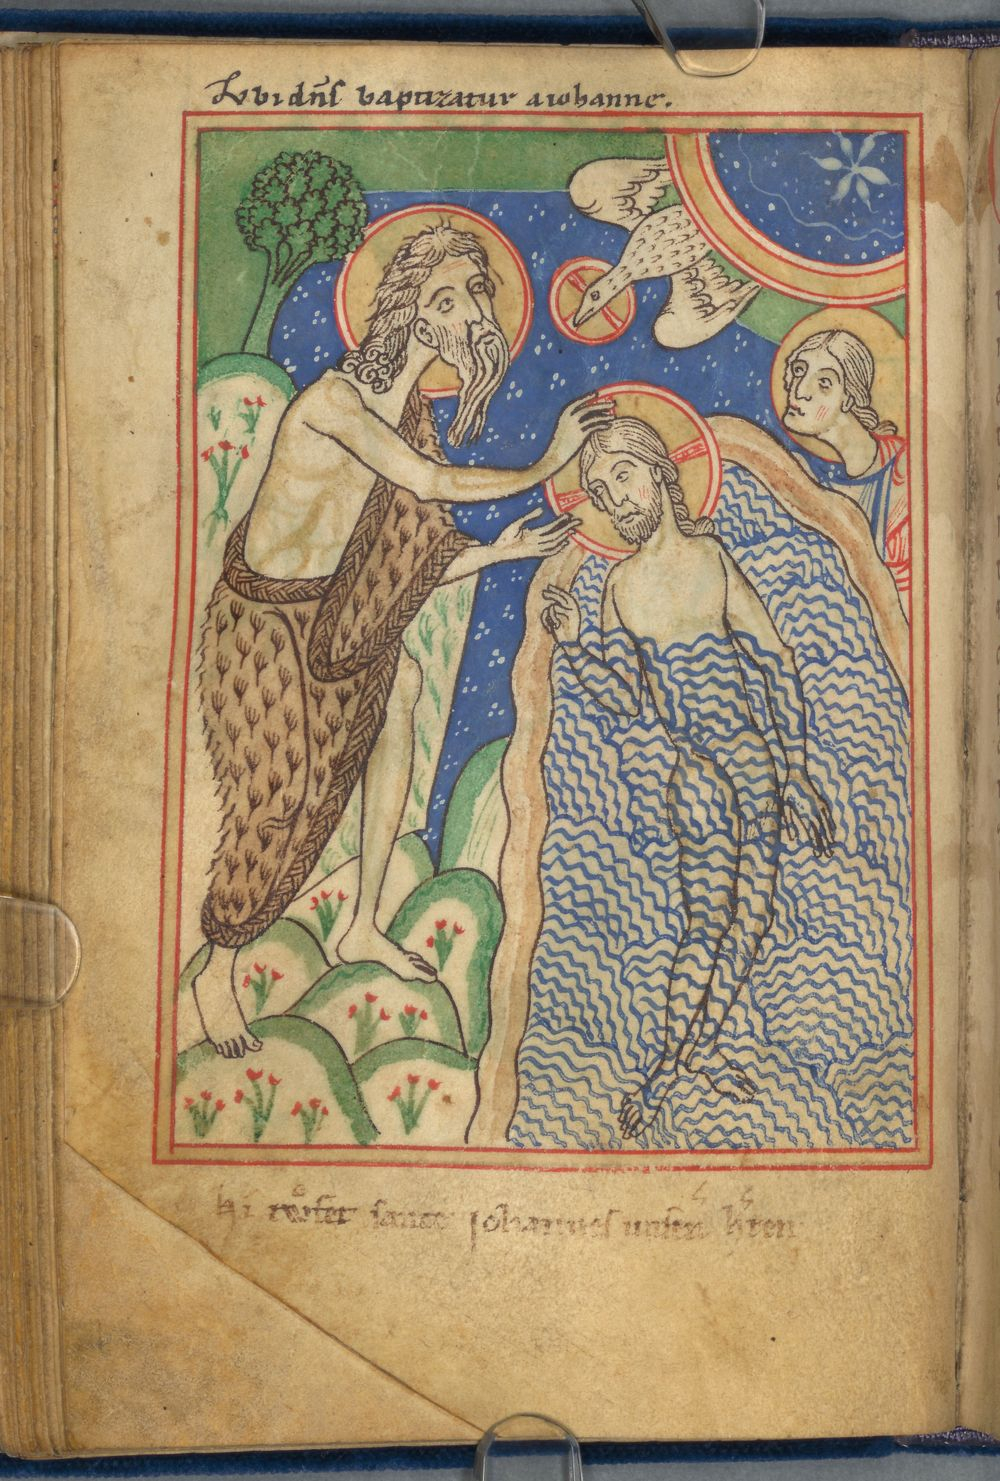 Vbi dn̄s baptizatur a iohanne.
Hi toͤfet sancte Johannes unsen h̓ren